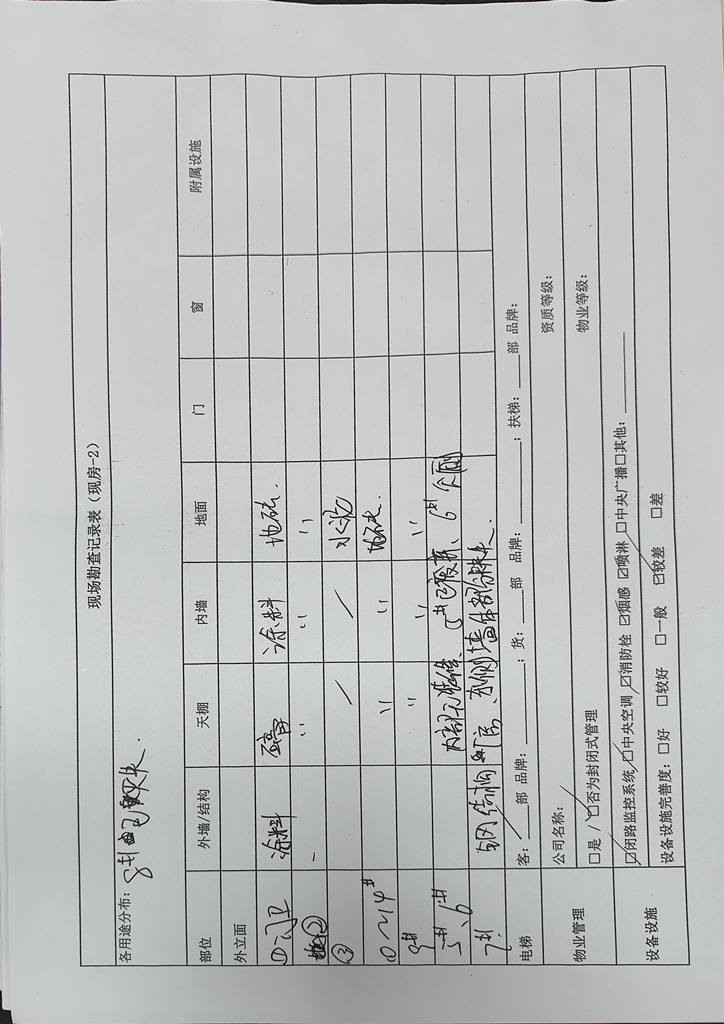 现场勘查记录表（现房-2）
各用途分布：
部位 外墙/结构 天棚 内墙 地面 门 窗 附属设施
外立面
①门卫 涂料 石膏 涂料 地砖.
② - 〃 〃 〃
③ / / 水泥
①～4# 〃 〃 地砖.
9# 〃 〃 〃
5#、6# 内部无装修、5#已废弃、6#
7# 钢结构 厂房、东侧墙体部分缺失.
电梯 客：___部 品牌：______；货：___部 品牌：______；扶梯：___部 品牌：
物业管理 公司名称： / 资质等级：
□是 / ☑否为封闭式管理 物业等级：
设备设施 ☑闭路监控系统 ☑中央空调 ☑消防栓 ☑烟感 ☑喷淋 □中央广播 □其他：______
设备设施完善度：□好 □较好 □一般 ☑较差 □差